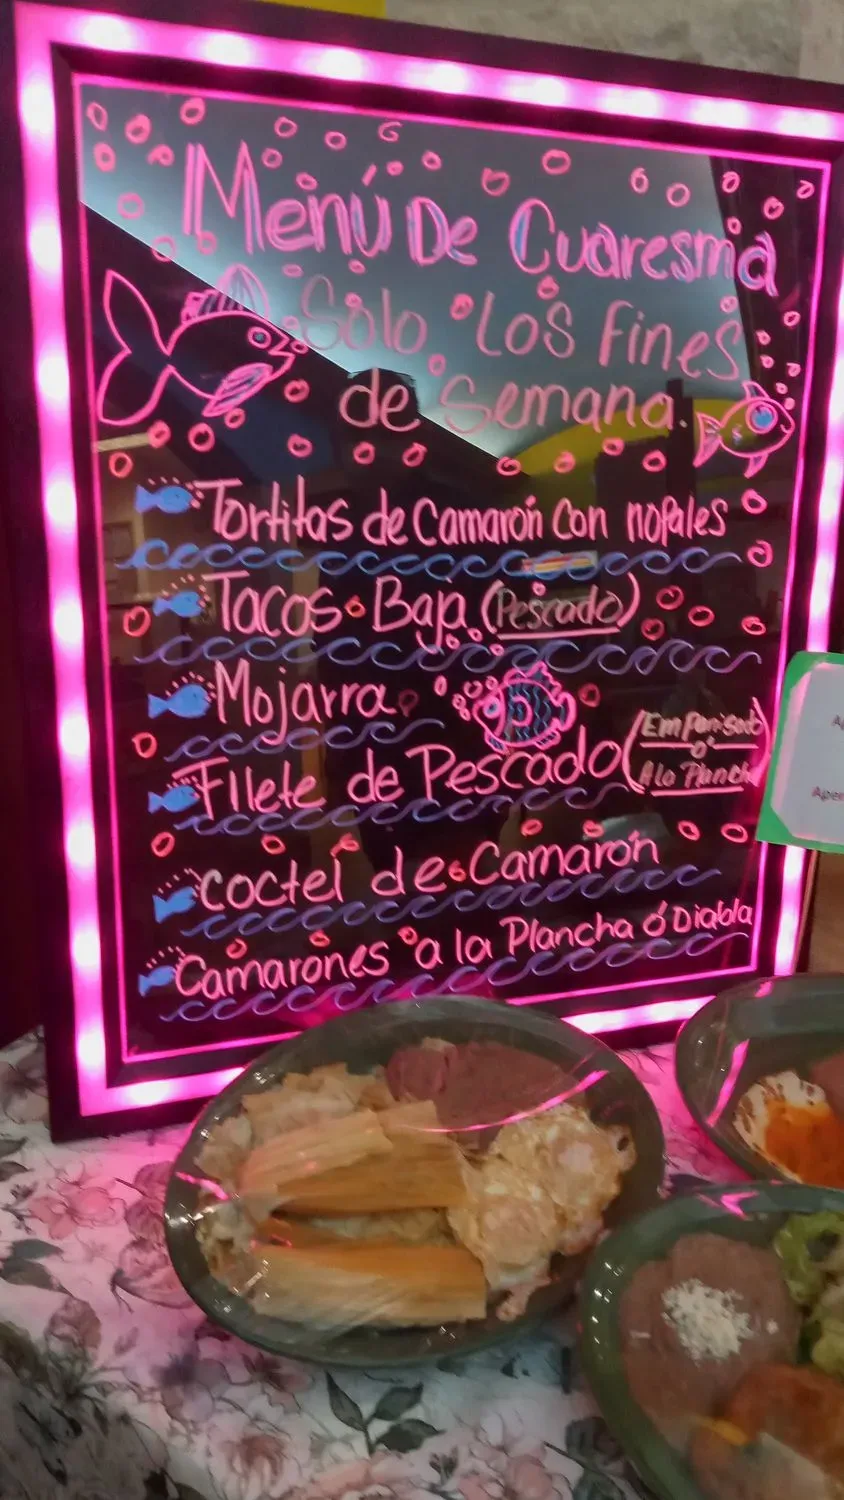 Menú De Cuaresma
Solo Los fines
de Semana.
Tortitas de Camarón Con nopales
Tacos Baja (Pescado)
Mojarra
Filete de Pescado (Empanisado
o'
A la Plancha)
Coctel de Camarón
Camarones a la Plancha ó Diabla